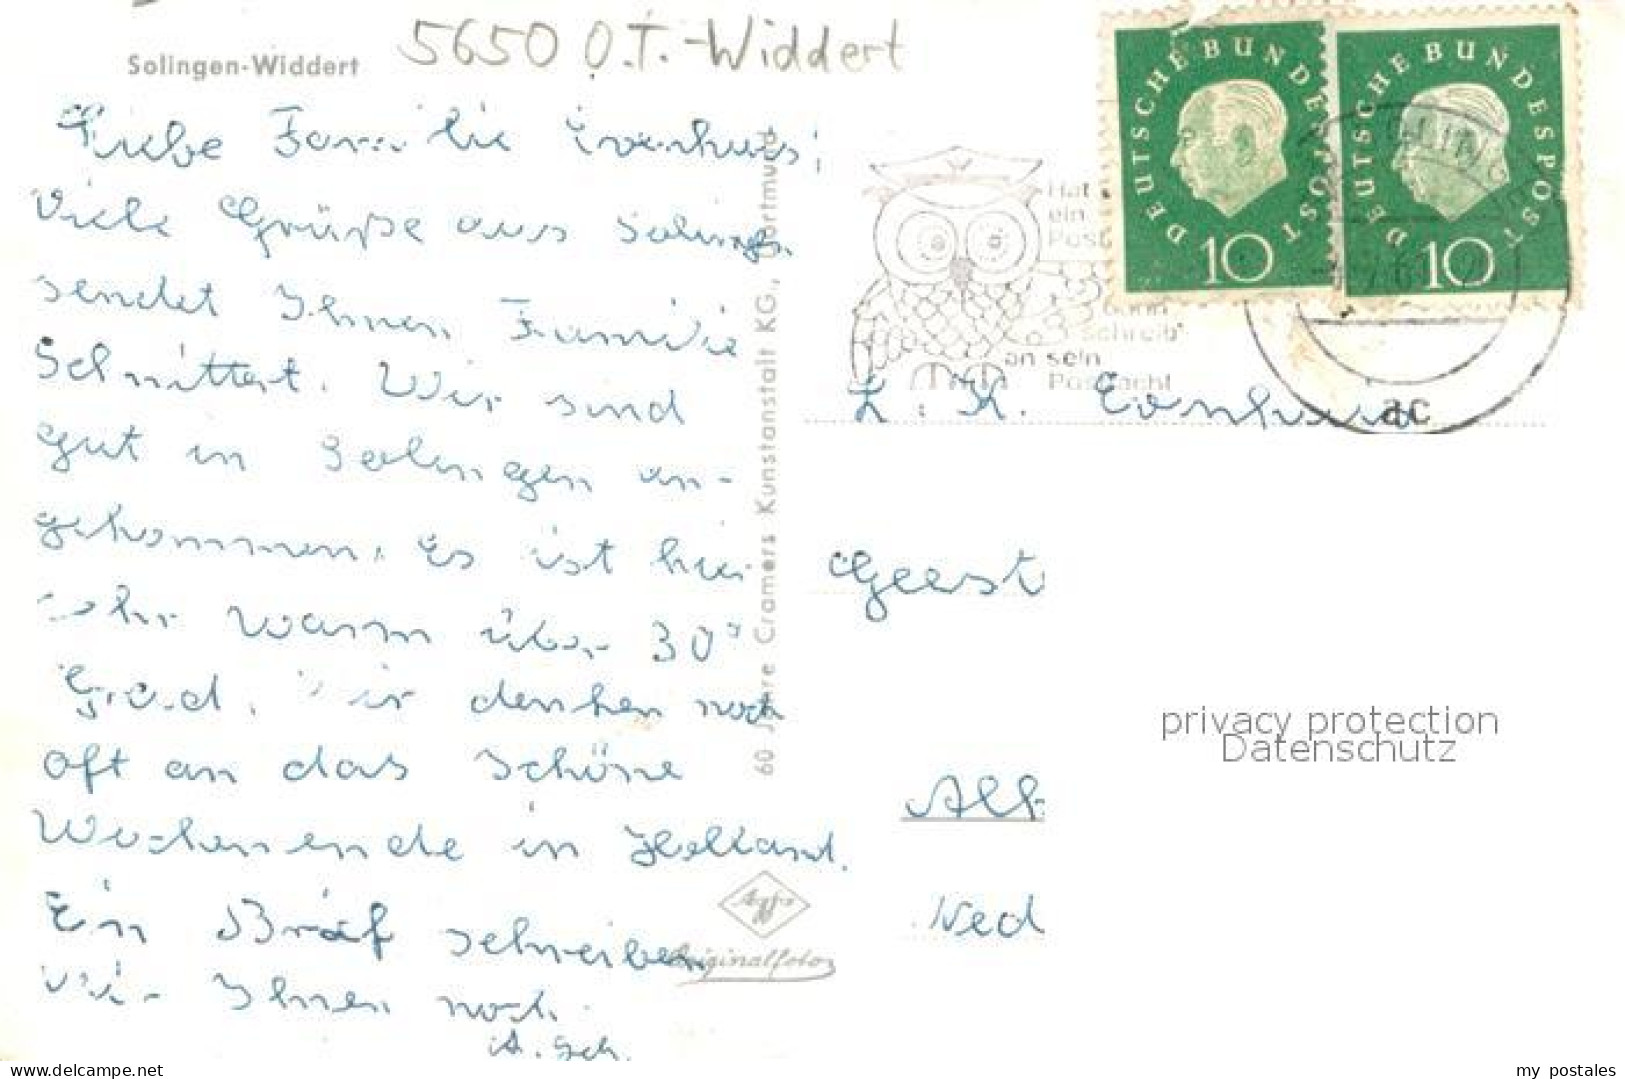 Solingen-Widdert
5650 O.T.-Widdert
Liebe Familie Evenhuis!
Viele Grüße aus Solingen
sendet Ihnen Familie
Schnittert. Wir sind
gut in Solingen an-
gekommen. Es ist hier
sehr warm über 30°
Grad. Wir denken noch
oft an das schöne
Wochenende in Holland.
Ein Brief schreiben
wir Ihnen noch.
A. Sch.
60 Jahre Cramers Kunstanstalt KG., Dortmund
Agfa
Originalfoto
DEUTSCHE BUNDESPOST
10
DEUTSCHE BUNDESPOST
10
Hat
ein
Post
dann
schreib'
an sein
Postfacht
ac
Evenhuis
Geest
Ned
privacy protection
Datenschutz
www.delcampe.net
my_postales